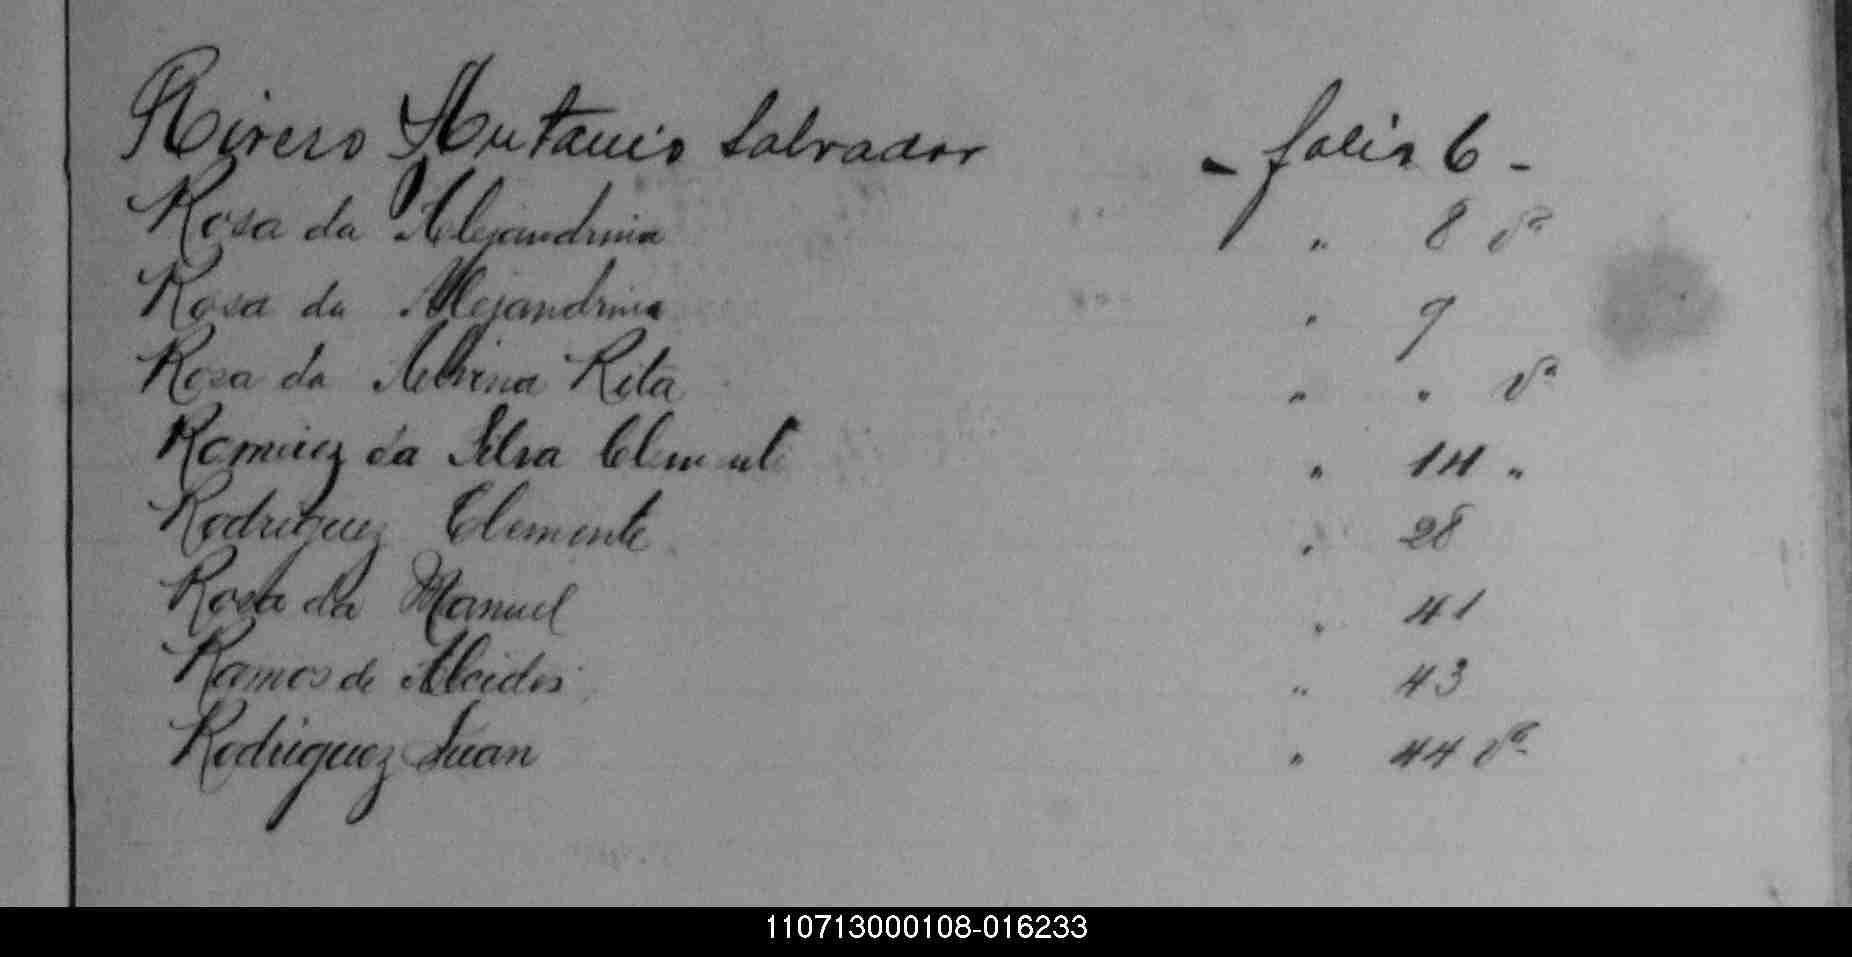 Rivero Antanio Salvador - folio 6 -
Rosa da Alejandrina " 8 vª
Rosa da Alejandrina " 9
Rosa da Alvina Rita " " vª
Ramirez da Silva Clemente " 14 "
Rodriguez Clemente " 28
Rosa da Manuel " 41
Ramos de Alcides " 43
Rodriguez Juan " 44 vª
110713000108-016233